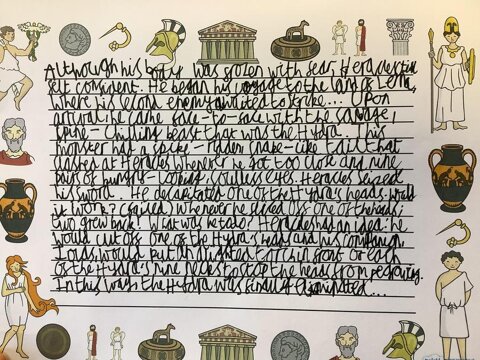 Although his body was frozen with fear, Heracles still
felt confident. He began his voyage to the land of Lerna,
where his second enemy awaited to strike.... Upon
arrival he came face-to-face with the savage,
spine-chilling beast that was the Hydra. This
monster had a spike-ridden, snake-like tail that
lashed at Heracles whenever he got too close and nine
pairs of hungry-looking, soulless eyes. Heracles seized
his sword. He decapitated one of the Hydra's heads. Would
it work? (It failed) Whenever he sliced off one of the heads,
two grew back! What was he to do? Heracles had an idea: he
would cut off one of the Hydra's heads and his companion,
Iolaus, would put an alighted torch in front of each
of the Hydra's nine necks to stop the heads from regrowing.
In this way the Hydra was finally eliminated....